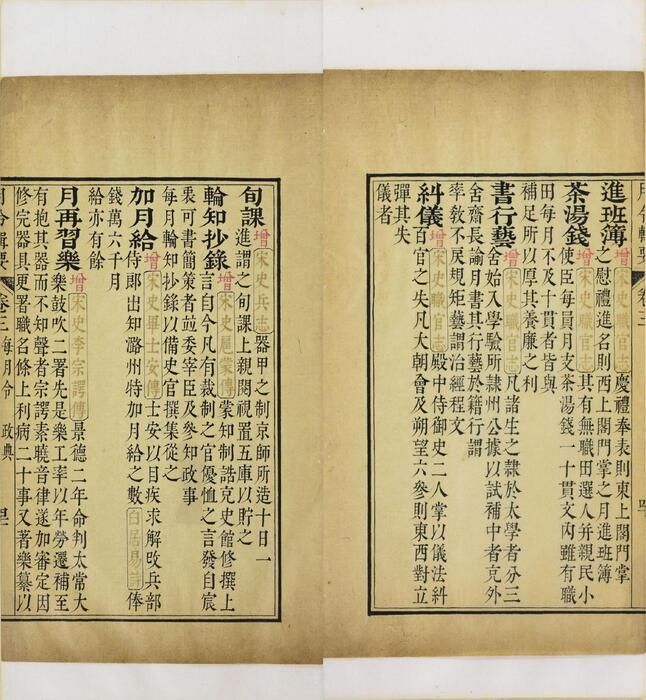 月令輯要 卷三
進班簿 增 宋史職官志 慶禮奉表則東上閤門掌
之慰禮進名則西上閤門掌之月進班簿
茶湯錢 增 宋史職官志 其有無職田選人并親民小
使臣每員月支茶湯錢一十貫文內雖有職
田每月不及十貫者皆與
補足所以厚其養廉之利
書行藝 增 宋史職官志 凡諸生之隸於太學者分三
舍始入學驗所隸州公據以試補中者充外
舍齋長諭月書其行藝於籍行謂
率敎不戾規矩藝謂治經程文
糾儀 增 宋史職官志 殿中侍御史二人掌以儀法糾
百官之失凡大朝會及朔望六參則東西對立
彈其失
儀者
旬課 增 宋史兵志 器甲之制京師所造十日一
進謂之旬課上親閱視置五庫以貯之
輪知抄錄 增 宋史扈蒙傳 蒙知制誥充史館修撰上
言自今凡有裁制之官優恤之言發自宸
衷可書簡策者並委宰臣及參知政事
每月輪知抄錄以備史官撰集從之
加月給 增 宋史畢士安傳 士安以目疾求解改兵部
侍郎出知潞州特加月給之數 白居易詩 俸
錢萬六千月
給亦有餘
月再習樂 增 宋史李宗諤傳 景德二年命判太常大
樂鼓吹二署先是樂工率以年勞遷補至
有抱其器而不知聲者宗諤素曉音律遂加審定因
修完器具更署職名條上利病二十事又著樂纂以
月令輯要 卷三 每月令 政典